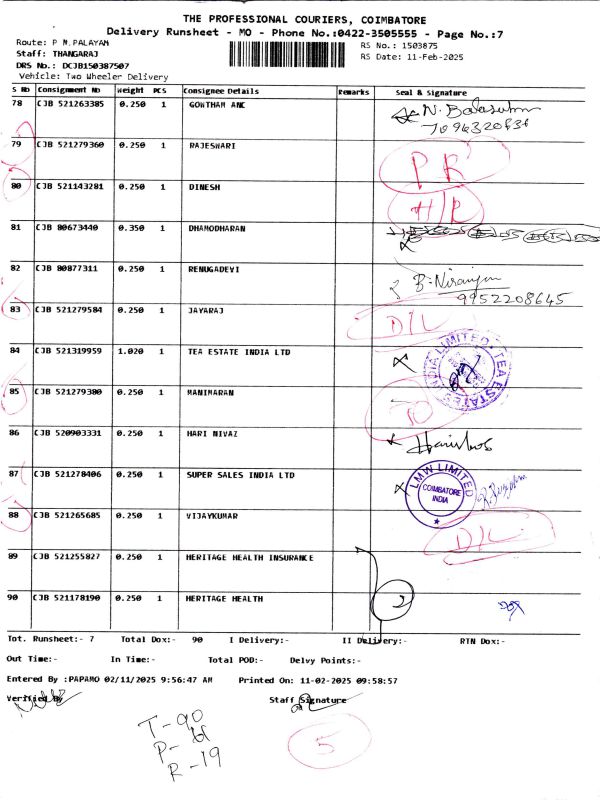 THE PROFESSIONAL COURIERS, COIMBATORE
Delivery Runsheet - MO - Phone No.:0422-3505555 - Page No.:7
Route: P N.PALAYAM
RS No.: 1503875
Staff: THANGARAJ
RS Date: 11-Feb-2025
DRS No.: DCJB150387507
Vehicle: Two Wheeler Delivery
S No Consignment No Weight PCS Consignee Details Remarks Seal & Signature
78 CJB 521263385 0.250 1 GOWTHAM ANC N. Balasubm
79 CJB 521279360 0.250 1 RAJESWARI P R
80 CJB 521143281 0.250 1 DINESH H/R
81 CJB 80673440 0.350 1 DHAMODHARAN
82 CJB 80877311 0.250 1 RENUGADEVI B. Niranjan
9952208645
83 CJB 521279584 0.250 1 JAYARAJ D/L
84 CJB 521319959 1.020 1 TEA ESTATE INDIA LTD
85 CJB 521279380 0.250 1 MANIMARAN
86 CJB 520903331 0.250 1 HARI NIVAZ
87 CJB 521278406 0.250 1 SUPER SALES INDIA LTD LMW LIMITED
COIMBATORE
INDIA
88 CJB 521265685 0.250 1 VIJAYKUMAR D/L
89 CJB 521255827 0.250 1 HERITAGE HEALTH INSURANCE
90 CJB 521178190 0.250 1 HERITAGE HEALTH 2
Tot. Runsheet:- 7 Total Dox:- 90 I Delivery:- II Delivery:- RTN Dox:-
Out Time:- In Time:- Total POD:- Delvy Points:-
Entered By :PAPAMO 02/11/2025 9:56:47 AM Printed On: 11-02-2025 09:58:57
Verified By Staff Signature
T-90
P-
R-19
5